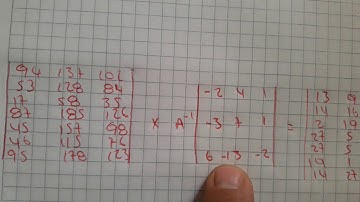 94 137 102
53 128 84 -2 4 1 13 9
17 58 35 14 16
87 185 126 x A⁻¹ -3 7 1 = 2 19
45 157 98 27 5
46 115 76 27 5
95 178 123 6 -13 -2 19 1
14 27